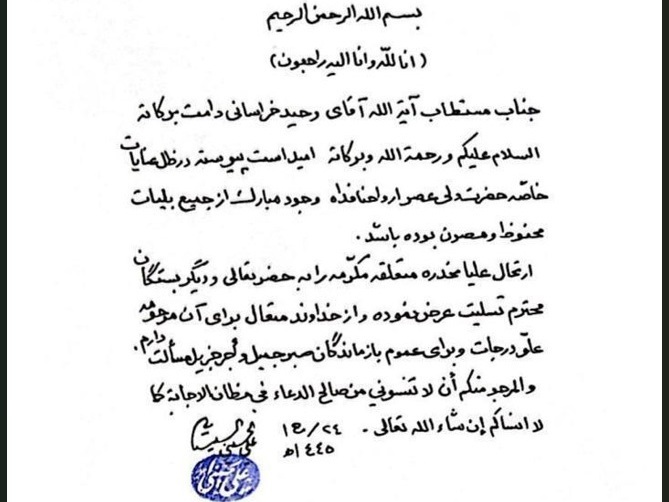 بسم الله الرحمن الرحیم
(انا لله وانا الیه راجعون)
جناب مستطاب آیة الله آقای وحید خراسانی دامت برکاته
السلام علیکم ورحمة الله وبرکاته امید است پیوسته در ظل عنایات
خاصّه حضرت ولی عصر ارواحنا فداه وجود مبارک از جمیع بلیات
محفوظ و مصون بوده باشد.
ارتحال علیا مخدره متعلقه مکرّمه را به حضرتعالی و دیگر بستگان
محترم تسلیت عرض نموده و از خداوند متعال برای آن مرحومه
علوّ درجات و برای عموم بازماندگان صبر جمیل و أجر جزیل مسألت دارم.
والمرجو منکم أن لا تنسوني من صالح الدعاء في مظان الاجابة کما
لا انساکم إن شاء الله تعالی.
٢٤/ع١
١٤٤٥ه
علي الحسيني السيستاني